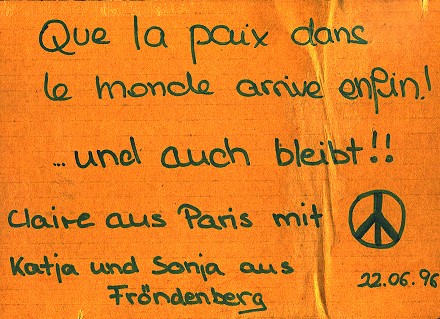 Que la paix dans
le monde arrive enfin!
...und auch bleibt!!
Claire aus Paris mit
Katja und Sonja aus
Fröndenberg
22.06.96